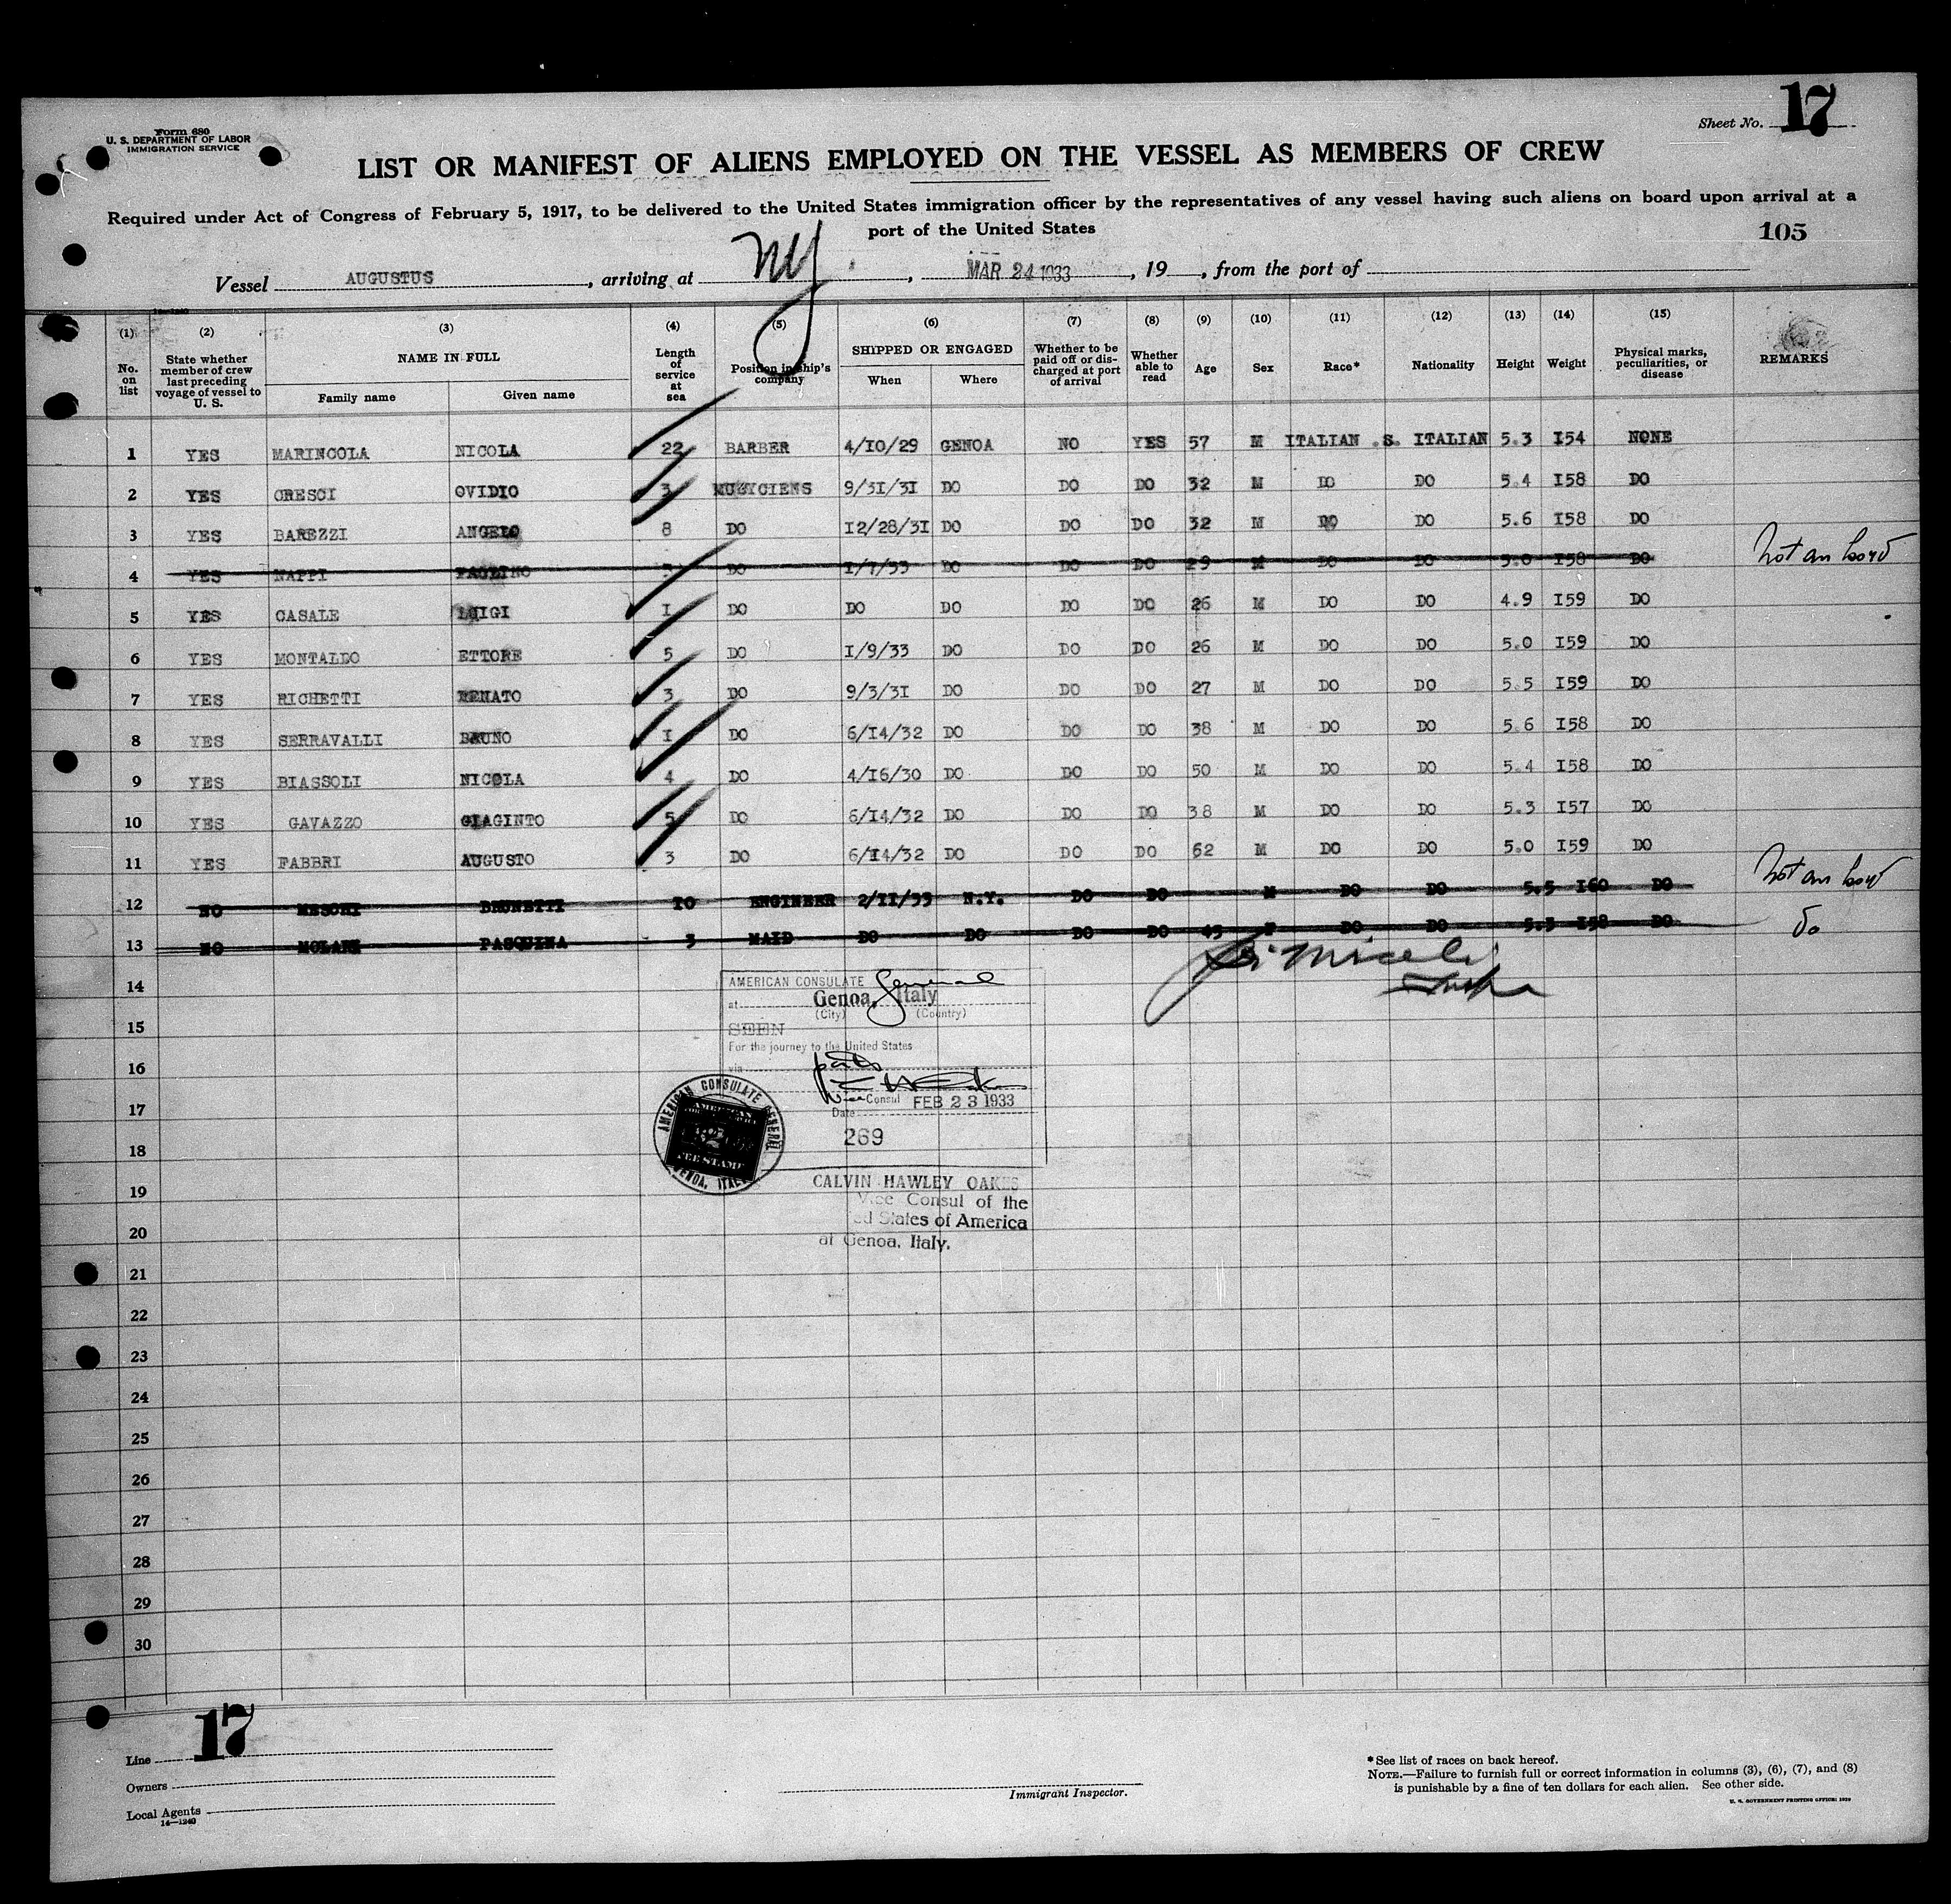 Form 680
U. S. DEPARTMENT OF LABOR
IMMIGRATION SERVICE
Sheet No. 17
LIST OR MANIFEST OF ALIENS EMPLOYED ON THE VESSEL AS MEMBERS OF CREW
Required under Act of Congress of February 5, 1917, to be delivered to the United States immigration officer by the representatives of any vessel having such aliens on board upon arrival at a
port of the United States
105
Vessel AUGUSTUS, arriving at NY, MAR 24 1933, 19, from the port of
(1) (2) (3) (4) (5) (6) (7) (8) (9) (10) (11) (12) (13) (14) (15)
No. on list State whether member of crew last preceding voyage of vessel to U. S. NAME IN FULL Family name Given name Length of service at sea Position in ship's company SHIPPED OR ENGAGED When Where Whether to be paid off or discharged at port of arrival Whether able to read Age Sex Race* Nationality Height Weight Physical marks, peculiarities, or disease REMARKS
1 YES MARINCOLA NICOLA 22 BARBER 4/10/29 GENOA NO YES 57 M ITALIAN .S. ITALIAN 5.3 I54 NONE
2 YES CRESCI OVIDIO 3 MUSYCIENS 9/3I/3I DO DO DO 32 M DO DO 5.4 I58 DO
3 YES BAREZZI ANGELO 8 DO I2/28/3I DO DO DO 32 M DO DO 5.6 I58 DO
4 YES NAPPI PAOLINO DO I/7/33 DO DO DO 29 M DO DO 5.0 I58 DO Not on bord
5 YES CASALE LUIGI I DO DO DO DO DO 26 M DO DO 4.9 I59 DO
6 YES MONTALDO ETTORE 5 DO I/9/33 DO DO DO 26 M DO DO 5.0 I59 DO
7 YES RICHETTI RENATO 3 DO 9/3/3I DO DO DO 27 M DO DO 5.5 I59 DO
8 YES SERRAVALLI BRUNO I DO 6/I4/32 DO DO DO 38 M DO DO 5.6 I58 DO
9 YES BIASSOLI NICOLA 4 DO 4/I6/30 DO DO DO 50 M DO DO 5.4 I58 DO
10 YES GAVAZZO GIAGINTO 5 DO 6/I4/32 DO DO DO 38 M DO DO 5.3 I57 DO
11 YES FABBRI AUGUSTO 3 DO 6/I4/32 DO DO DO 62 M DO DO 5.0 I59 DO
12 NO MESCHI BRUNETTI IO ENGINEER 2/II/33 N.Y. DO DO M DO DO 5.5 I60 DO Not on bord
13 NO MOLARI PASQUINA 3 MAID DO DO DO DO 45 F DO DO 5.3 I58 DO Do
14
15
16
17
18
19
20
21
22
23
24
25
26
27
28
29
30
Miceli
AMERICAN CONSULATE General
at Genoa, Italy
(City) (Country)
SEEN
For the journey to the United States
via
Vice Consul
Date FEB 23 1933
269
AMERICAN CONSULATE GENERAL
GENOA, ITALY
AMERICAN
FEE STAMP
CALVIN HAWLEY OAKES
Vice Consul of the
ed States of America
at Genoa, Italy.
17
Line
Owners
Local Agents
14—1240
Immigrant Inspector.
*See list of races on back hereof.
NOTE.—Failure to furnish full or correct information in columns (3), (6), (7), and (8)
is punishable by a fine of ten dollars for each alien. See other side.
U. S. GOVERNMENT PRINTING OFFICE: 1929